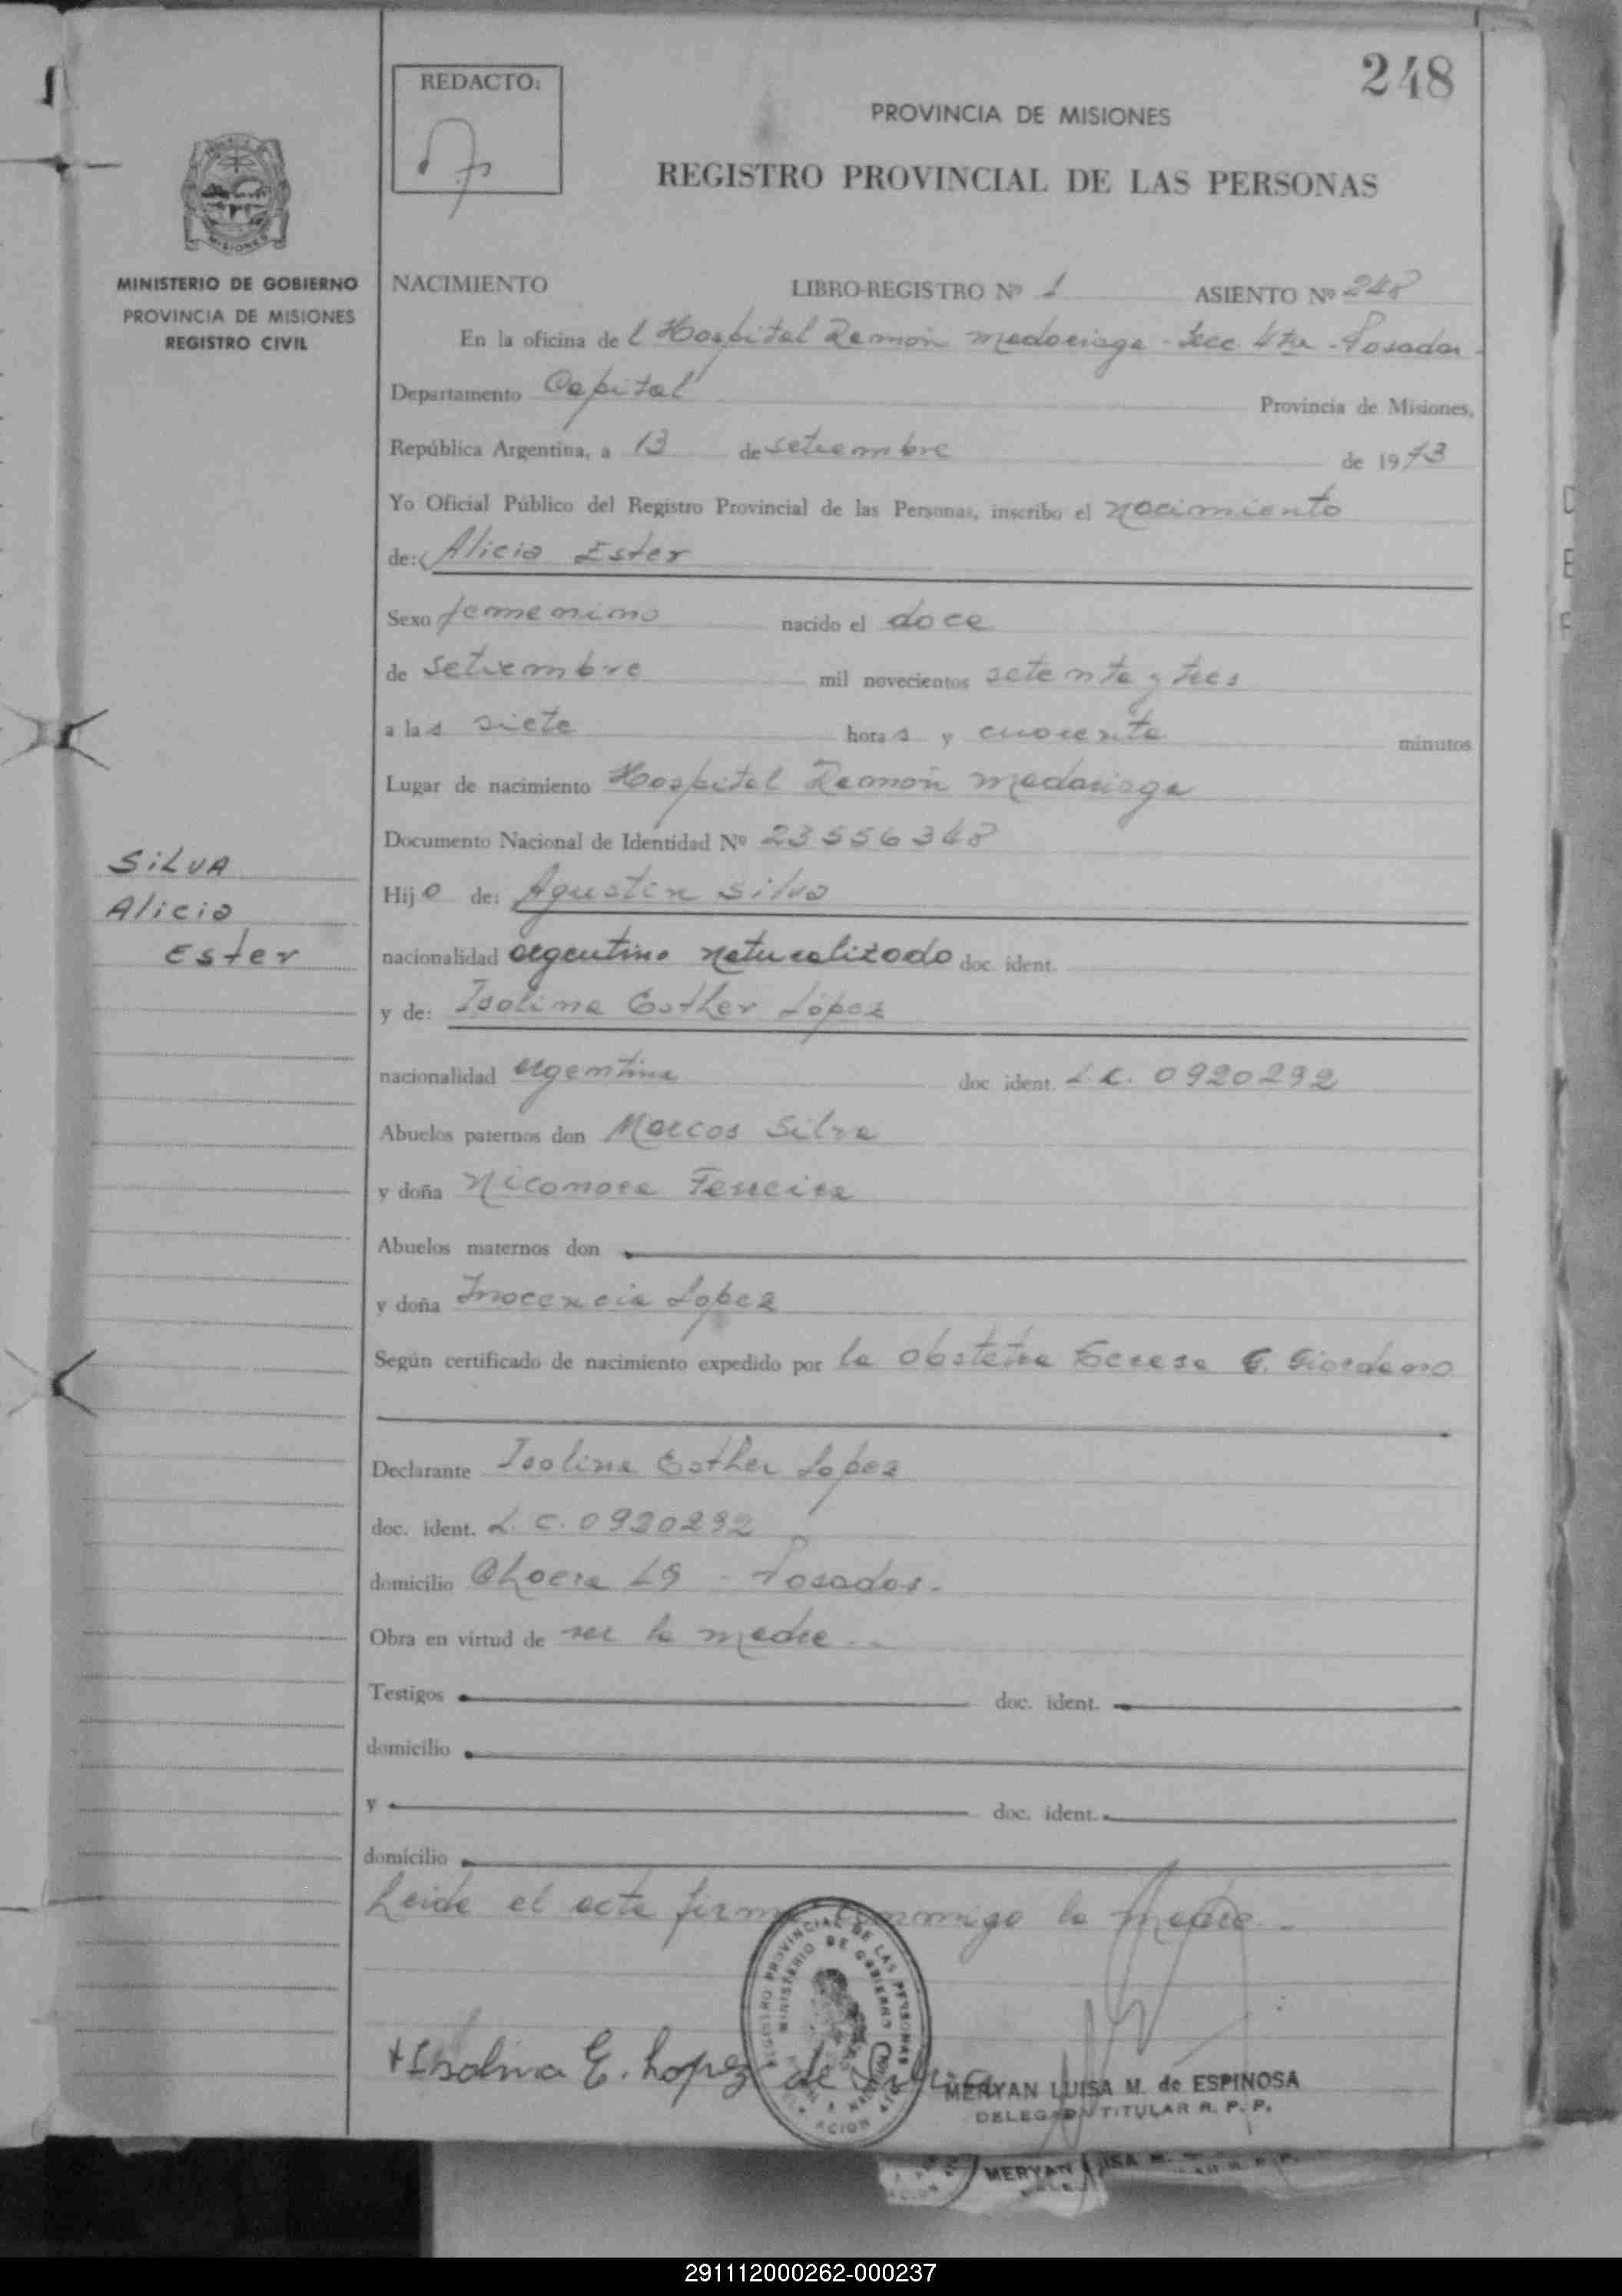 248
REDACTO:
PROVINCIA DE MISIONES
REGISTRO PROVINCIAL DE LAS PERSONAS
MISIONES
MINISTERIO DE GOBIERNO
PROVINCIA DE MISIONES
REGISTRO CIVIL
NACIMIENTO LIBRO-REGISTRO Nº 1 ASIENTO Nº 248
En la oficina de l Hospital Ramón Madariaga - Secc. 4ta - Posadas -
Departamento Capital Provincia de Misiones,
República Argentina, a 13 de setiembre de 1973
Yo Oficial Público del Registro Provincial de las Personas, inscribo el nacimiento
de: Alicia Ester
Sexo femenino nacido el doce
de setiembre mil novecientos setenta y tres
a las siete horas y cuarenta minutos
Lugar de nacimiento Hospital Ramón Madariaga
Documento Nacional de Identidad Nº 23556348
SILVA
Alicia
Ester
Hijo de: Agustin Silva
nacionalidad argentino naturalizado doc. ident.
y de: Isolina Esther López
nacionalidad argentina doc ident. L.C. 0920292
Abuelos paternos don Marcos Silva
y doña Nicomora Ferreira
Abuelos maternos don
y doña Inocencia Lopez
Según certificado de nacimiento expedido por la obstetra Teresa G. Giordano
Declarante Isolina Esther Lopez
doc. ident. L.C. 0920292
domicilio Chacra 19 - Posadas.
Obra en virtud de ser la madre. -
Testigos doc. ident.
domicilio
y doc. ident.
domicilio
Leida el acta firma conmigo la madre -
REGISTRO PROVINCIAL DE LAS PERSONAS
MINISTERIO DE GOBIERNO
+Isolina E. Lopez de Silva
MERYAN LUISA M. de ESPINOSA
DELEGADA TITULAR R. P. P.
MERYAN LUISA M.
291112000262-000237